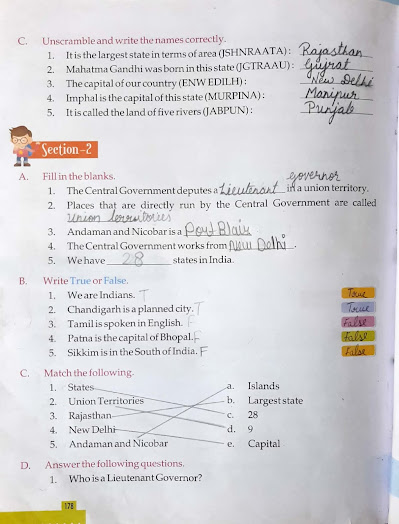 C. Unscramble and write the names correctly.
1. It is the largest state in terms of area (JSHNRAATA) : Rajasthan
2. Mahatma Gandhi was born in this state (JGTRAAU) : Gujrat
3. The capital of our country (ENW EDILH) : New Delhi
4. Imphal is the capital of this state (MURPINA) : Manipur
5. It is called the land of five rivers (JABPUN) : Punjab
Section-2
A. Fill in the blanks.
governor
1. The Central Government deputes a Lieutenant in a union territory.
2. Places that are directly run by the Central Government are called
Union territories
3. Andaman and Nicobar is a Port Blair
4. The Central Government works from New Delhi.
5. We have 28 states in India.
B. Write True or False.
1. We are Indians. T True
2. Chandigarh is a planned city. T True
3. Tamil is spoken in English. F False
4. Patna is the capital of Bhopal. F False
5. Sikkim is in the South of India. F False
C. Match the following.
1. States a. Islands
2. Union Territories b. Largest state
3. Rajasthan c. 28
4. New Delhi d. 9
5. Andaman and Nicobar e. Capital
D. Answer the following questions.
1. Who is a Lieutenant Governor?
178